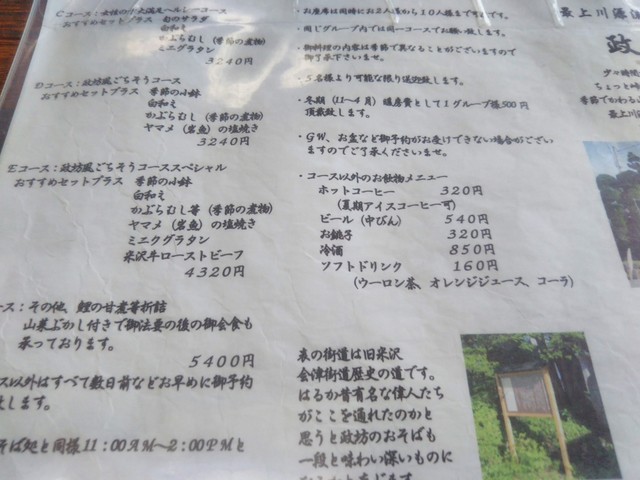 Cコース：女性の大満足ヘルシーコース
おすすめセットプラス 旬のサラダ
白和え
かぶらむし（季節の煮物）
ミニグラタン
3240円
Dコース：政坊風ごちそうコース
おすすめセットプラス 季節の小鉢
白和え
かぶらむし（季節の煮物）
ヤマメ（岩魚）の塩焼き
3240円
Eコース：政坊風ごちそうコーススペシャル
おすすめセットプラス 季節の小鉢
白和え
かぶらむし等（季節の煮物）
ヤマメ（岩魚）の塩焼き
ミニクグラタン
米沢牛ローストビーフ
4320円
ース：その他、鯉の甘煮等折詰
山菜ぶかし付きで御法要の後の御会食も
承っております。
5400円
ス以外はすべて数日前などお早めに御予約
致します。
そば処と同様11：00AM〜2：00PMと
・お座席は同時にお2人様から10人様まで可です。
・同じグループ内では同一コースでお願い致します。
・御料理の内容は季節で異なることがございますので
御了承下さいませ。
・5名様より可能な限り送迎致します。
・冬期（11〜4月）暖房費として1グループ様500円
頂戴致します。
・GW、お盆など御予約がお受けできない場合がござい
ますのでご了承くださいませ。
・コース以外のお飲物メニュー
ホットコーヒー 320円
（夏期アイスコーヒー可）
ビール（中びん） 540円
お銚子 320円
冷酒 850円
ソフトドリンク 160円
（ウーロン茶、オレンジジュース、コーラ）
表の街道は旧米沢
会津街道歴史の道です。
はるか昔有名な偉人たち
がここを通れたのかと
思うと政坊のおそばも
一段と味わい深いものに
最上川源
政
夕の時
ちょっと
季節でかわる
最上川